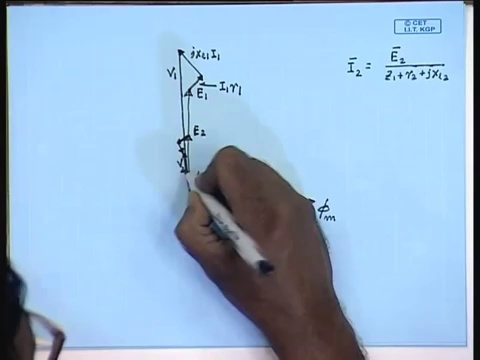 © CET
I.I.T. KGP
jx_{L1} I_1
V_1
I_1 r_1
E_1
E_2
ϕ_m
Ī_2 = Ē_2 / (z_1 + r_2 + jx_{L2})